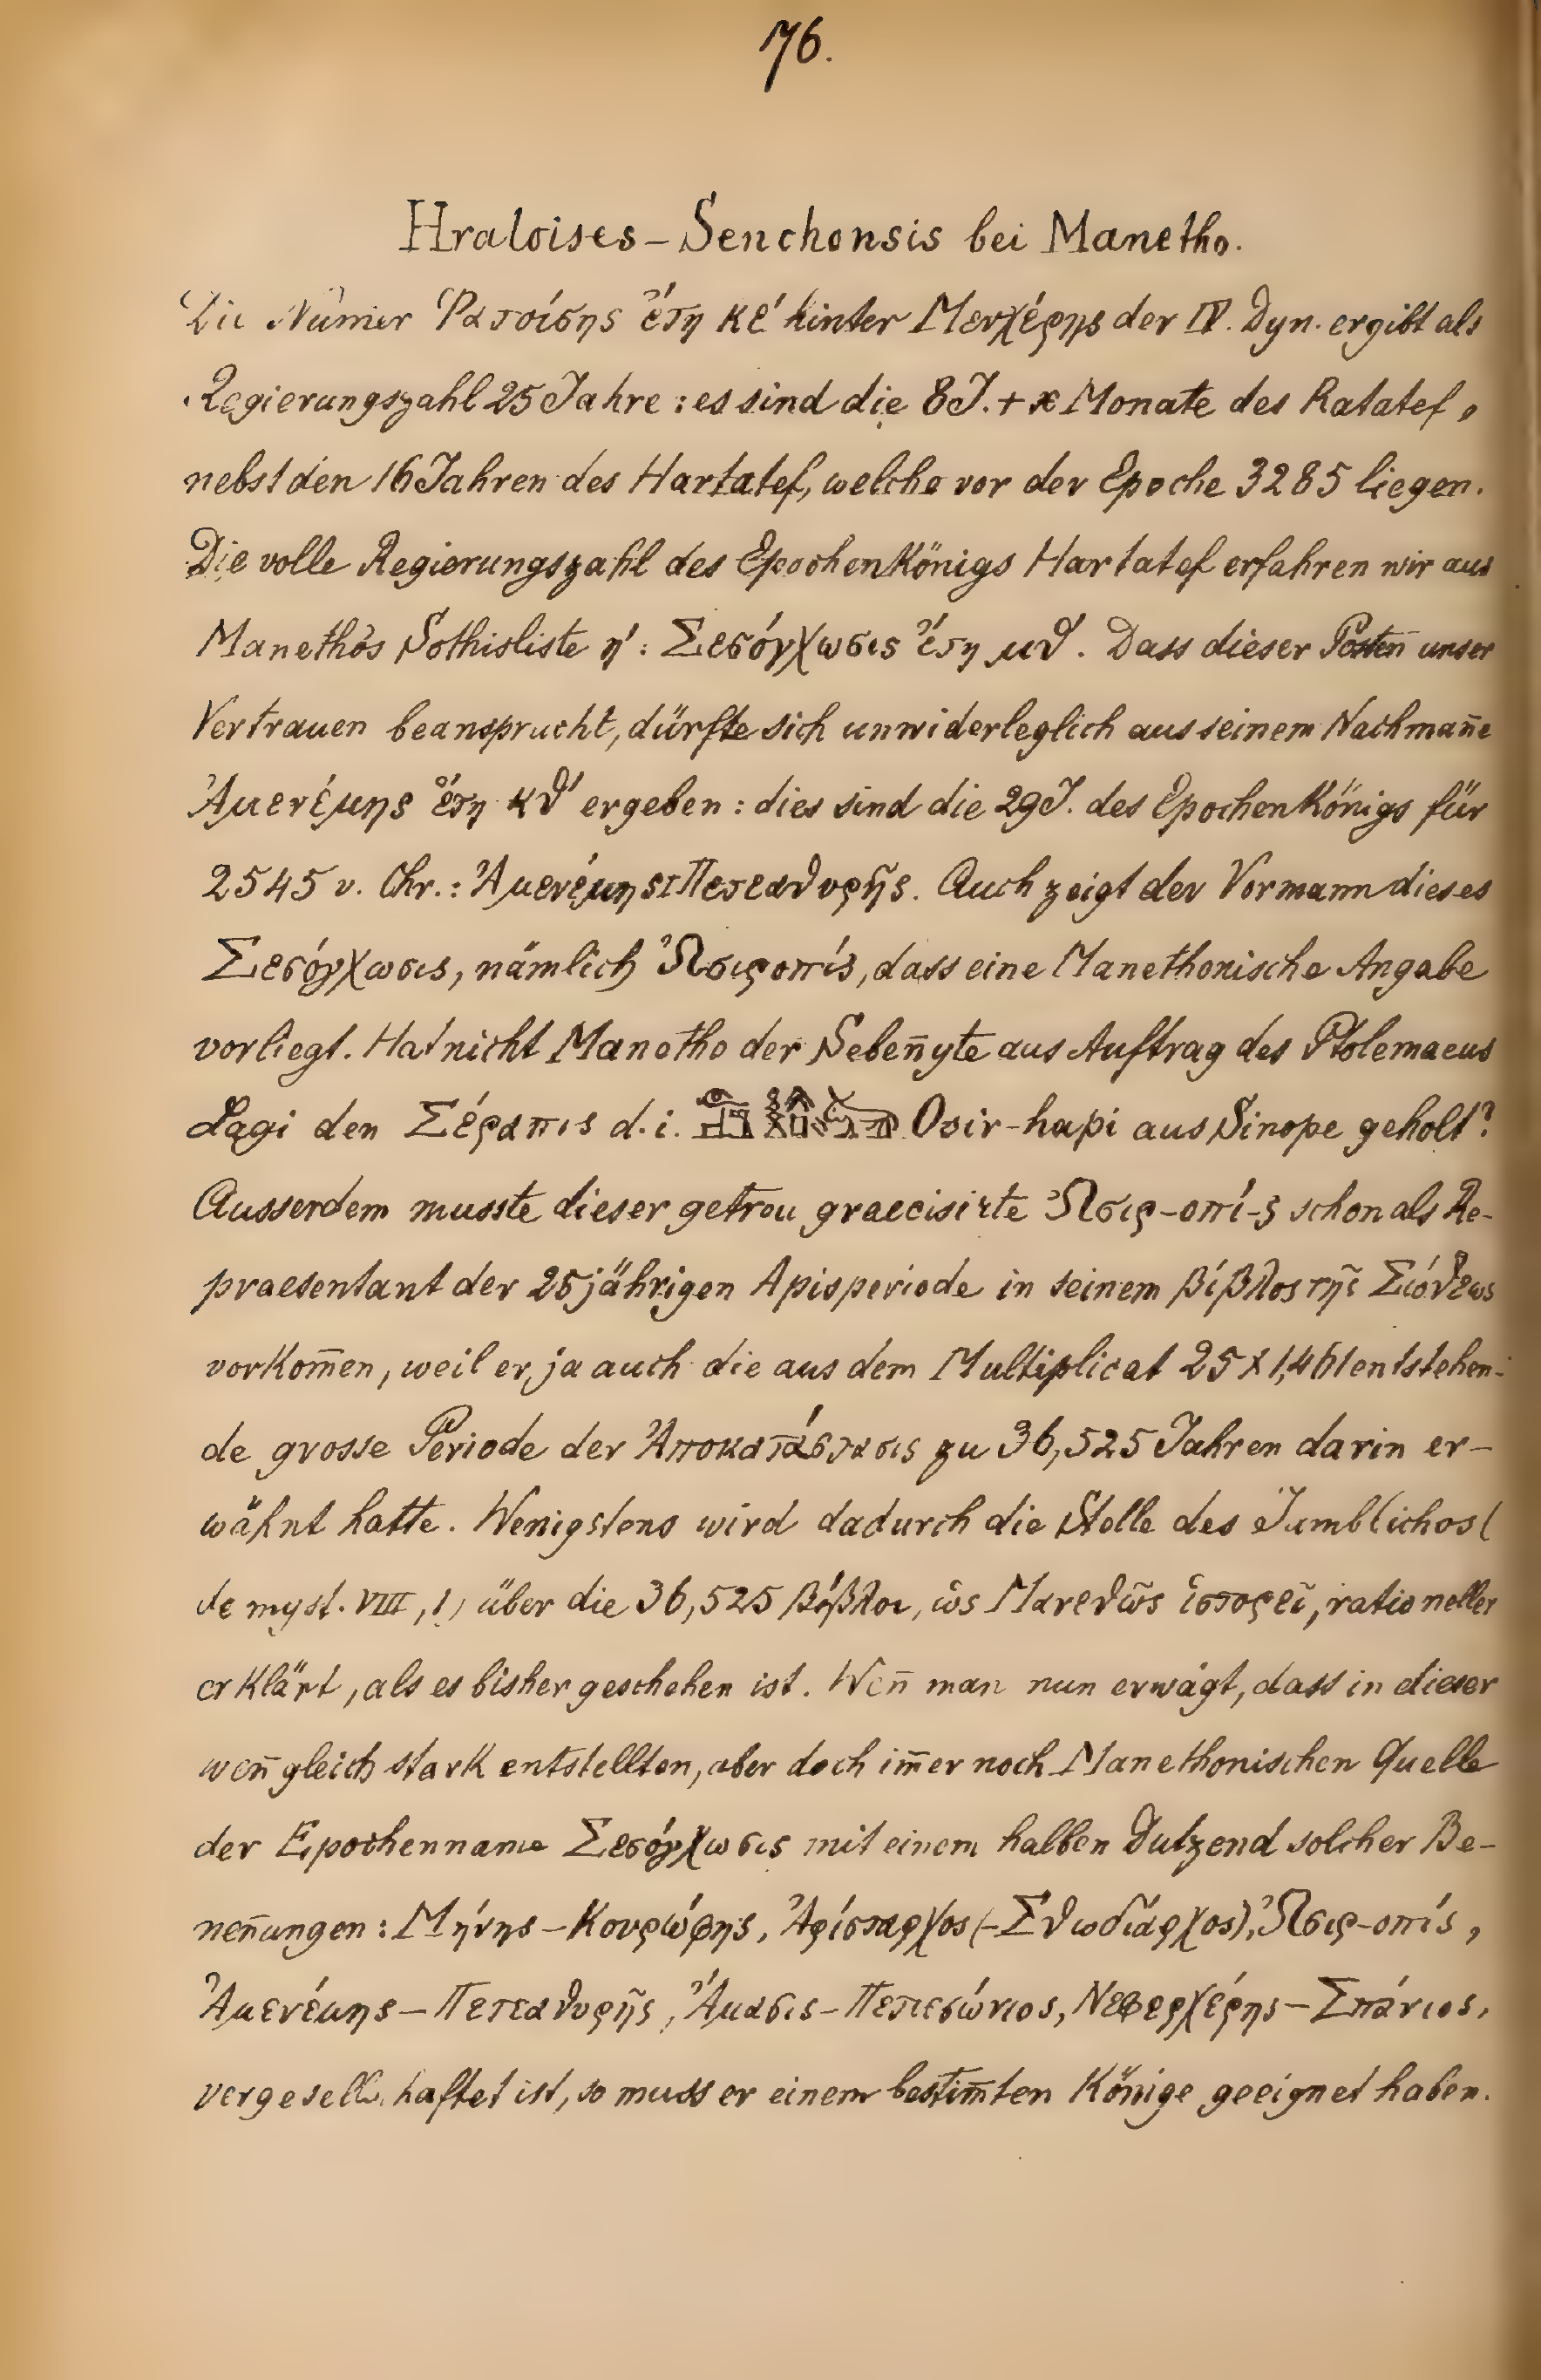 76.
Hraloises – Senchonsis bei Manetho.
Die Num̄er Ῥατοίσης ἔτη κε΄ hinter Μενχέρης der IV. Dyn. ergibt als
Regierungszahl 25 Jahre : es sind die 8 J. + x Monate des Ratatef,
nebst den 16 Jahren des Hartatef, welche vor der Epoche 3285 liegen.
Die volle Regierungszahl des Epochenkönigs Hartatef erfahren wir aus
Manetho's Sothisliste η΄: Σεσόγχωσις ἔτη μθ. Dass dieser Posten unser
Vertrauen beansprucht, dürfte sich unwiderleglich aus seinem Nachman̄e
Ἀμενέμης ἔτη κθ΄ ergeben : dies sind die 29 J. des Epochenkönigs für
2545 v. Chr. : Ἀμενέμης I Πετεαθυρῆς. Auch zeigt der Vormann dieses
Σεσόγχωσις, nämlich Ὠσιροπίς, dass eine Manethonische Angabe
vorliegt. Hat nicht Manetho der Seben̄yte aus Auftrag des Ptolemaeus
Lagi den Σέραπις d. i. Osir-hapi aus Sinope geholt?
Ausserdem musste dieser getreu graecisirte Ὠσιρ-οπί-ς schon als Re-
praesentant der 25jährigen Apisperiode in seinem βίβλος τῆς Σώθεως
vorkom̄en, weil er ja auch die aus dem Multiplicat 25 x 1,461 entstehen-
de grosse Periode der Ἀποκατάστασις zu 36,525 Jahren darin er-
wähnt hatte. Wenigstens wird dadurch die Stelle des Jamblichos (
de myst. VIII, 1) über die 36,525 βίβλοι, ὡς Μανεθῶς ἱστορεῖ, rationeller
erklärt, als es bisher geschehen ist. Wen̄ man nun erwägt, dass in dieser
wen̄gleich stark entstellten, aber doch im̄er noch Manethonischen Quelle
der Epochenname Σεσόγχωσις mit einem halben Dutzend solcher Be-
nen̄ungen : Μήνης – Κουρώφης, Ἀρίσταρχος (– Σθωδίαρχος), Ὠσιρ-οπίς,
Ἀμενέμης – Πετεαθυρῆς, Ἄμασις – Πετισώνιος, Νεφερχέρης – Σπάνιος,
vergesellschaftet ist, so muss er einem bestim̄ten Könige geeignet haben.